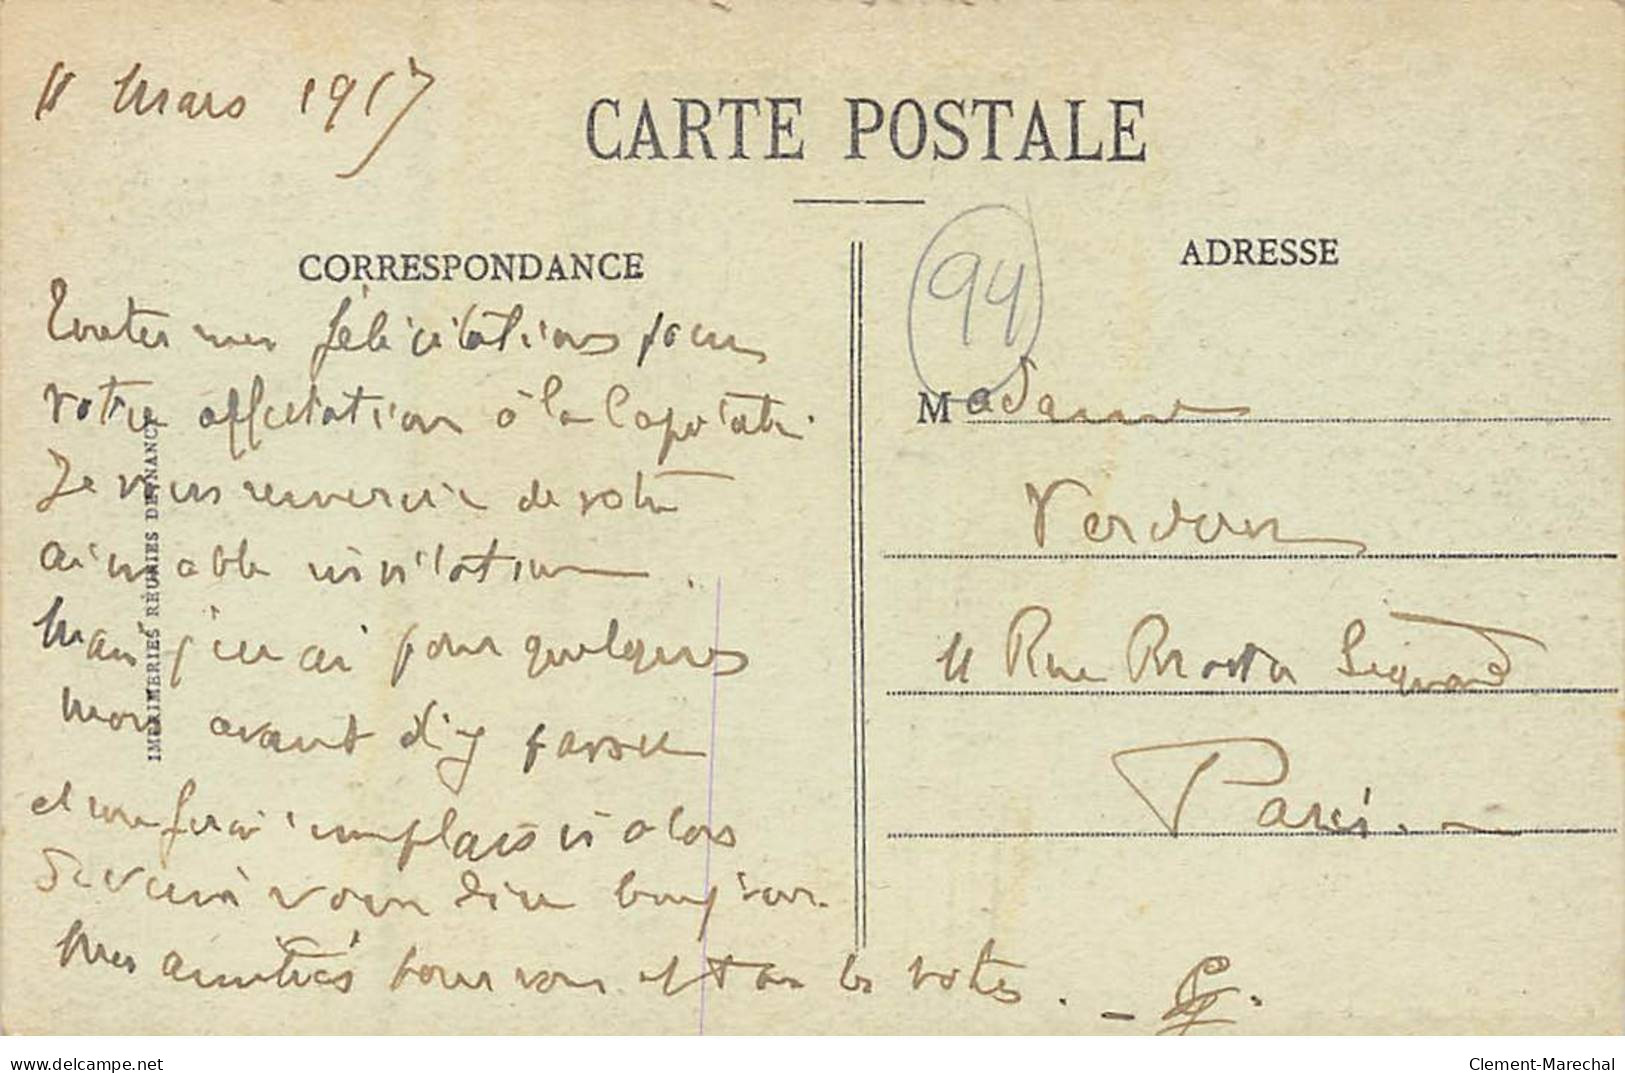 11 Mars 1917
CARTE POSTALE
CORRESPONDANCE
ADRESSE
94
Toutes mes félicitations pour
votre affectation à la Capitale.
Je vous remercie de votre
aimable invitation.
Mais j'en ai pour quelques
mois avant d'y passer
et me ferai un plaisir alors
de venir vous dire bonjour.
Mes amitiés pour vous et tous les vôtres. -
Madame
Verdun
11 Rue Brown Sequard
Paris. -
IMPRIMERIES RÉUNIES DE NANCY
www.delcampe.net
Clement-Marechal